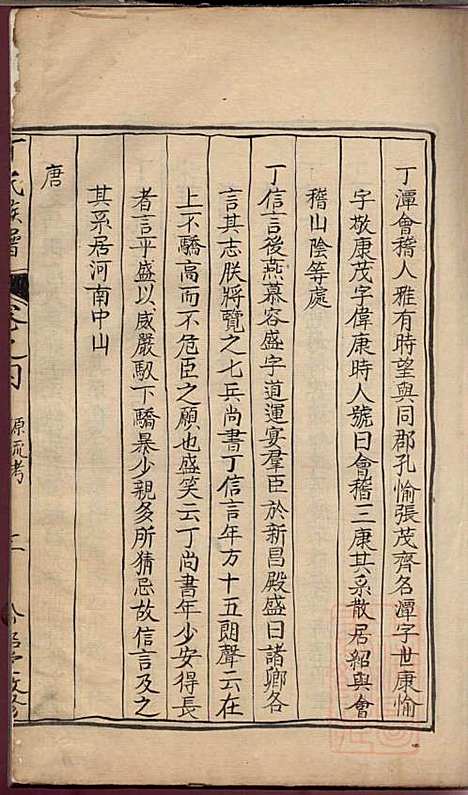 丁潭會稽人雅有時望與同郡孔愉張茂齊名潭字世康愉
字敬康茂字偉康時人號曰會稽三康其系散居紹興會
稽山陰等處
丁信言後燕慕容盛字道運宴羣臣於新昌殿盛曰諸卿各
言其志朕將覽之七兵尚書丁信言年方十五朗聲云在
上不驕高而不危臣之願也盛笑云丁尚書年少安得長
者言乎盛以威嚴馭下驕暴少親多所猜忌故信言及之
其系居河南中山
唐
丁氏族譜 源流考